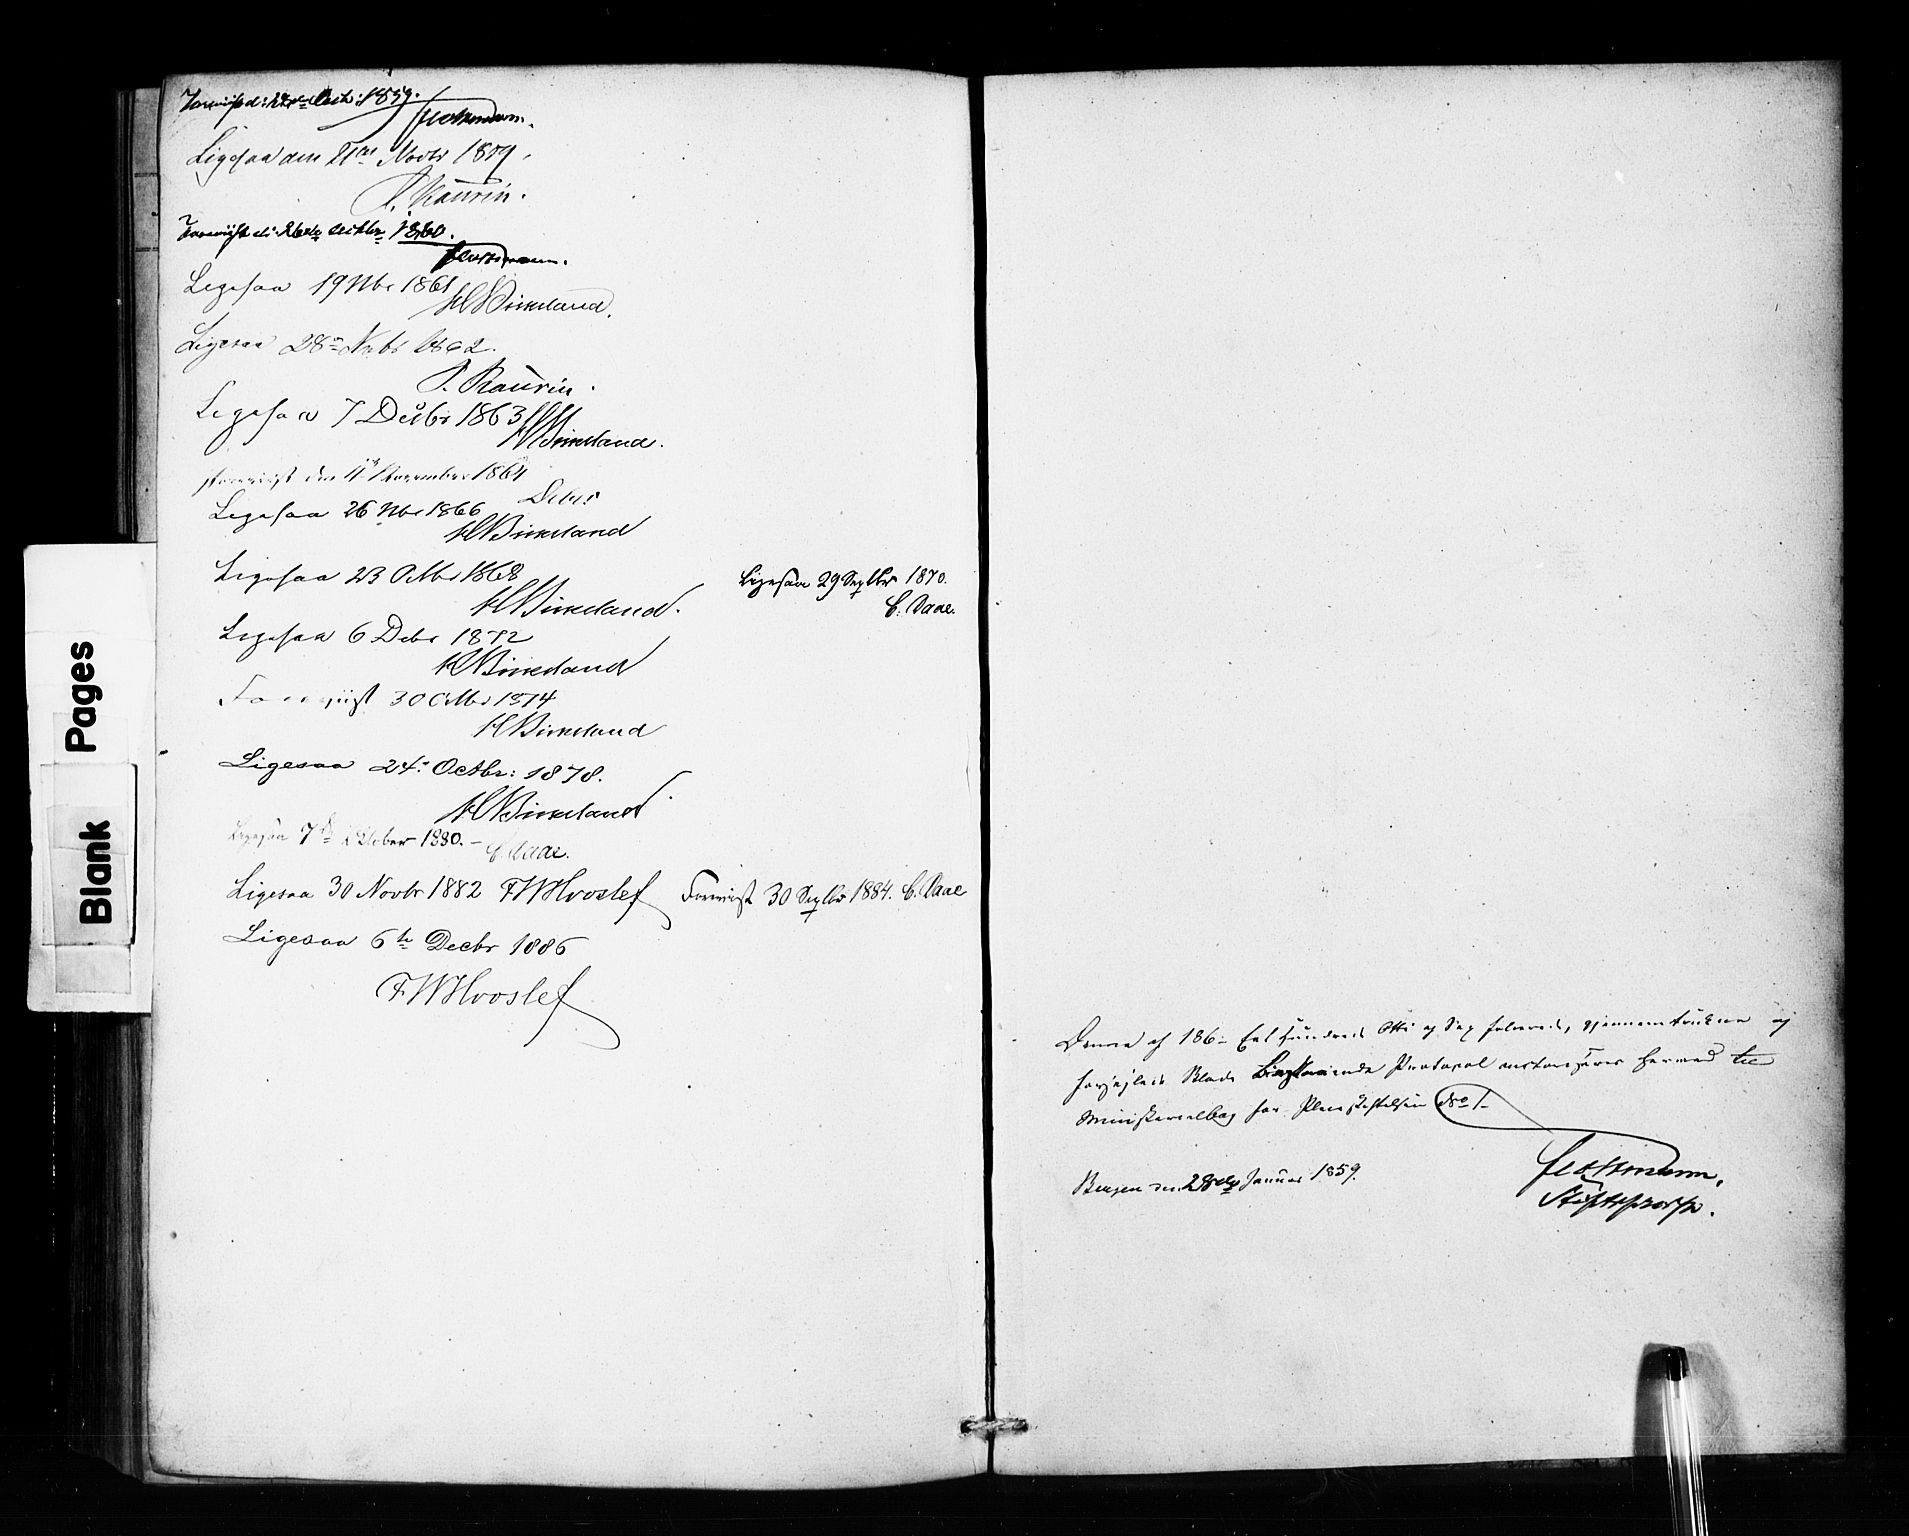 Foreviist d: 1859.
Ligesaa den Novbr 1859.
P. Kaurin.
Foreviist d: 26de Octbr 1860.
Ligesaa 19 Nbr 1861
HBirkeland.
Ligesaa 28de Nvbr 1862.
P. Kaurin.
Ligesaa 7 Decbr 1863
HBirkeland.
Foreviist den 11 November 1864
Ligesaa 26 Nbr 1866
HBirkeland
Ligesaa 23 Octbr 1868
HBirkeland.
Ligesaa 29 Septbr 1870.
C. Daae.
Ligesaa 6 Debr 1872
HBirkeland
Foreviist 30 Octbr 1874
HBirkeland
Ligesaa 24. Octbr: 1878.
HBirkeland
Ligesaa 7de October 1880.
C. Daae.
Ligesaa 30 Novbr 1882 FWHvoslef
Foreviist 30 Septbr 1884. C. Daae
Ligesaa 6te Decbr 1886
FWHvoslef
Blank Pages
Denne af 186 Eet Hundrede Otti og Sex folierede, gjennemtrukne og
forseglede Blade bestaaende Protocol autoriseres herved til
Ministerialbog for Pleiestiftelsen No 1
Bergen den 28de Januar 1859.
Stiftsprovst.